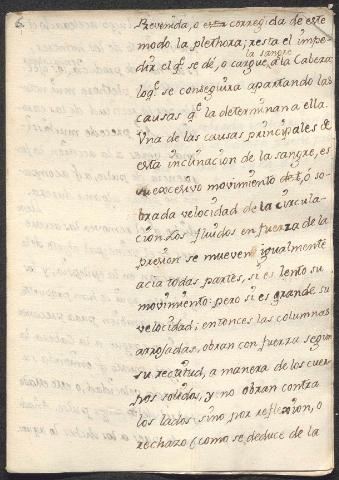 6.
Prevenida, o corregida de este
modo la plethora; resta el impe-
dir el q.e se dé, o cargue a la Cabeza
la sangre
loq.e se conseguira apartando las
causas q.e la determinan a ella.
Vna de las causas principales de
esta inclinacion de la sangre, es
su excesivo movimiento, ó so-
brada velocidad de la circula-
cion. Los fluidos en fuerza de la
presion se mueven igualmente
acia todas partes, si es lento su
movimiento: pero si es grande su
velocidad; entonces las columnas
arrojadas, obran con fuerza segun
su rectitud, a manera de los cuer-
pos solidos, y no obran contra
los lados, sino por reflexion, o
rechazo (como se deduce de la